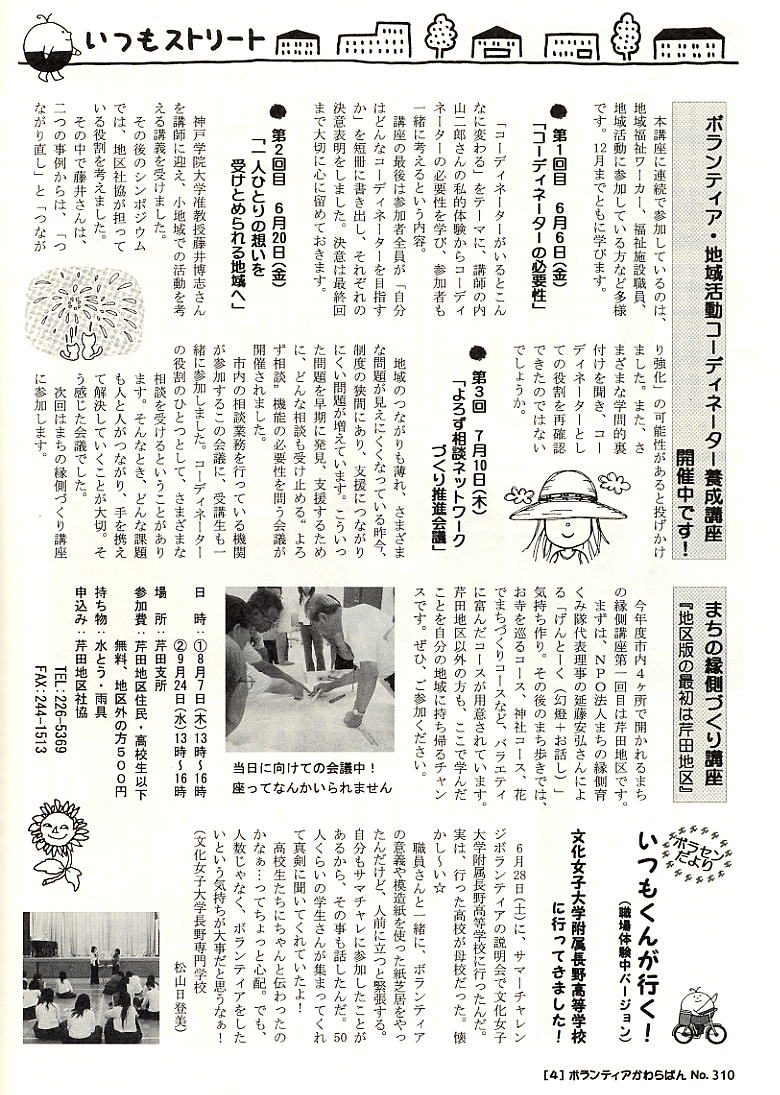 いつもストリート
ボランティア・地域活動コーディネーター養成講座
開催中です！
本講座に連続で参加しているのは、
地域福祉ワーカー、福祉施設職員、
地域活動に参加している方など多様
です。12月までともに学びます。
● 第1回目　6月6日(金)
「コーディネーターの必要性」
「コーディネーターがいるとこん
なに変わる」をテーマに、講師の内
山二郎さんの私的体験からコーディ
ネーターの必要性を学び、参加者も
一緒に考えるという内容。
講座の最後は参加者全員が「自分
はどんなコーディネーターを目指す
か」を短冊に書き出し、それぞれの
決意表明をしました。決意は最終回
まで大切に心に留めておきます。
● 第2回目　6月20日(金)
「一人ひとりの想いを
受けとめられる地域へ」
神戸学院大学准教授藤井博志さん
を講師に迎え、小地域での活動を考
える講義を受けました。
その後のシンポジウム
では、地区社協が担って
いる役割を考えました。
その中で藤井さんは、
二つの事例からは、「つ
ながり直し」と「つなが
り強化」の可能性があると投げかけ
ました。また、さ
まざまな学問的裏
付けを聞き、コー
ディネーターとし
ての役割を再確認
できたのではない
でしょうか。
● 第3回　7月10日(木)
「よろず相談ネットワーク
づくり推進会議」
地域のつながりも薄れ、さまざま
な問題が見えにくくなっている昨今、
制度の狭間にあり、支援につながり
にくい問題が増えています。こういっ
た問題を早期に発見、支援するため
に、どんな相談も受け止める"よろ
ず相談"機能の必要性を問う会議が
開催されました。
市内の相談業務を行っている機関
が参加するこの会議に、受講生も一
緒に参加しました。コーディネーター
の役割のひとつとして、さまざまな
相談を受けるということがあり
ます。そんなとき、どんな課題
も人と人がつながり、手を携え
て解決していくことが大切。そ
う感じた会議でした。
次回はまちの縁側づくり講座
に参加します。
まちの縁側づくり講座
『地区版の最初は芹田地区』
今年度市内4ヶ所で開かれるまち
の縁側講座第一回目は芹田地区です。
まずは、NPO法人まちの縁側育
くみ隊代表理事の延藤安弘さんによ
る「げんとーく（幻燈+お話し）」で
気持ち作り。その後のまち歩きでは、
お寺を巡るコース、神社コース、花
でまちづくりコースなど、バラエティ
に富んだコースが用意されています。
芹田地区以外の方も、ここで学んだ
ことを自分の地域に持ち帰るチャン
スです。ぜひ、ご参加ください。
当日に向けての会議中！
座ってなんかいられません
日　時：①8月7日(木)13時～16時
②9月24日(水)13時～16時
場　所：芹田支所
参加費：芹田地区住民・高校生以下
無料、地区外の方500円
持ち物：水とう・雨具
申込み：芹田地区社協
TEL:226-5369
FAX:244-1513
ボラセン
だより
いつもくんが行く！
(職場体験中バージョン)
文化女子大学附属長野高等学校
に行ってきました！
6月28日(土)に、サマーチャレン
ジボランティアの説明会で文化女子
大学附属長野高等学校に行ったんだ。
実は、行った高校が母校だった。懐
かし～い☆
職員さんと一緒に、ボランティア
の意義や模造紙を使った紙芝居をやっ
たんだけど、人前に立つと緊張する。
自分もサマチャレに参加したことが
あるから、その事も話したんだ。50
人くらいの学生さんが集まってくれ
て真剣に聞いてくれていたよ！
高校生たちにちゃんと伝わったの
かなぁ…ってちょっと心配。でも、
人数じゃなく、ボランティアをした
いという気持ちが大事だと思うなぁ！
（文化女子大学長野専門学校
松山日登美）
[4] ボランティアかわらばん No.310